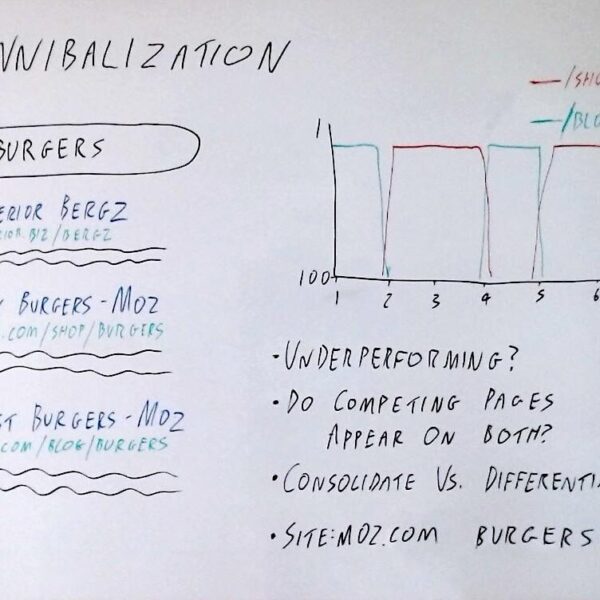 NNIBALIZATION
BURGERS
ERIOR BERGZ
RIOR.BIZ/BERGZ
BURGERS - MOZ
.COM/SHOP/BURGERS
ST BURGERS - MOZ
COM/BLOG/BURGERS
/SHO
/BLO
1
100
1 2 3 4 5 6
• UNDERPERFORMING?
• DO COMPETING PAGES
APPEAR ON BOTH?
• CONSOLIDATE VS. DIFFERENTI
• SITE:MOZ.COM BURGERS